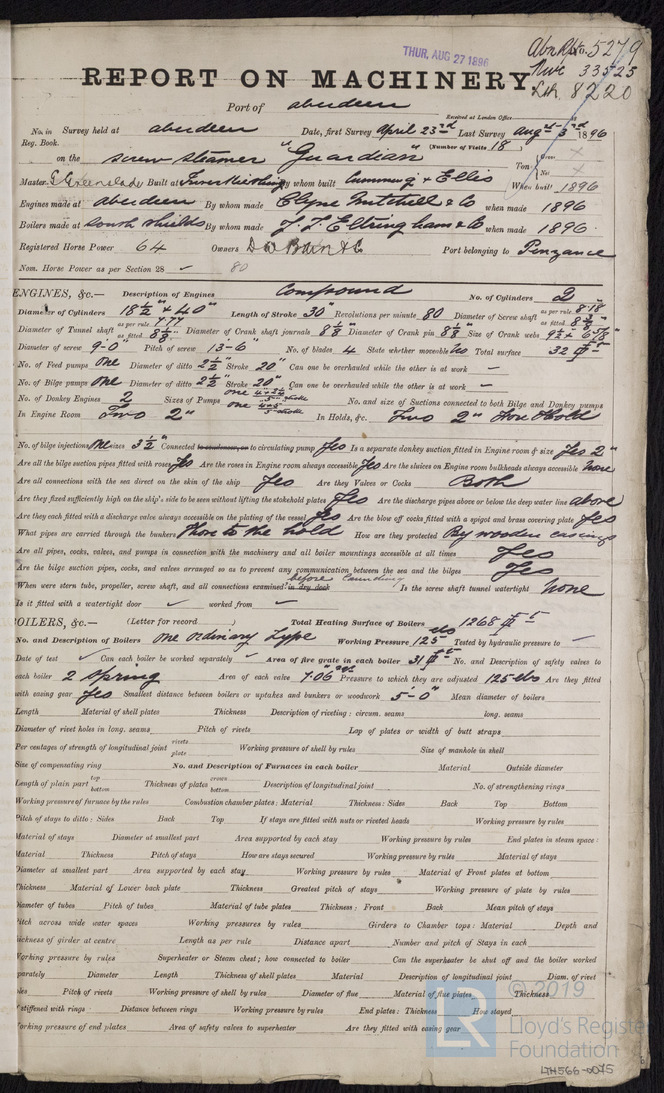 THUR. AUG 27 1896
Abn Rpt No. 5279
Nwc 33525
Lth 8220
REPORT ON MACHINERY.
Port of aberdeen
Received at London Office
No. in Survey held at aberdeen Date, first Survey April 23rd Last Survey Augst 3rd 1896
Reg. Book. (Number of Visits 18)
on the screw steamer "Guardian" Ton Gross Net
Master G Greenslade Built at Inverkeithing By whom built Cumming & Ellis When built 1896
Engines made at aberdeen By whom made Clyne Mitchell & Co when made 1896
Boilers made at South Shields By whom made J. T. Eltringham & Co when made 1896
Registered Horse Power 64 Owners D W Bain & Co Port belonging to Penzance
Nom. Horse Power as per Section 28 80
ENGINES, &c.— Description of Engines Compound No. of Cylinders 2
Diameter of Cylinders 18½" & 40" Length of Stroke 30" Revolutions per minute 80 Diameter of Screw shaft as per rule 8.18 as fitted
Diameter of Tunnel shaft as per rule 7.77 as fitted 8⅛ Diameter of Crank shaft journals 8⅛" Diameter of Crank pin 8⅛" Size of Crank webs
Diameter of screw 9'-0" Pitch of screw 13'-6" No. of blades 4 State whether moveable No Total surface 32
No. of Feed pumps one Diameter of ditto 2½" Stroke 20" Can one be overhauled while the other is at work —
No. of Bilge pumps one Diameter of ditto 2½" Stroke 20" Can one be overhauled while the other is at work —
No. of Donkey Engines 2 Sizes of Pumps one one No. and size of Suctions connected to both Bilge and Donkey pumps
In Engine Room Two 2" In Holds, &c. Two 2" Fore Hold
No. of bilge injections one sizes 3½" Connected to condenser, or to circulating pump Yes Is a separate donkey suction fitted in Engine room & size Yes 2"
Are all the bilge suction pipes fitted with roses Yes Are the roses in Engine room always accessible Yes Are the sluices on Engine room bulkheads always accessible none
Are all connections with the sea direct on the skin of the ship Yes Are they Valves or Cocks Both
Are they fixed sufficiently high on the ship's side to be seen without lifting the stokehold plates Yes Are the discharge pipes above or below the deep water line above
Are they each fitted with a discharge valve always accessible on the plating of the vessel Yes Are the blow off cocks fitted with a spigot and brass covering plate Yes
What pipes are carried through the bunkers Those to the hold How are they protected By wooden casings
Are all pipes, cocks, valves, and pumps in connection with the machinery and all boiler mountings accessible at all times Yes
Are the bilge suction pipes, cocks, and valves arranged so as to prevent any communication between the sea and the bilges Yes
When were stern tube, propeller, screw shaft, and all connections examined in dry dock before launching Is the screw shaft tunnel watertight none
Is it fitted with a watertight door worked from
BOILERS, &c.— (Letter for record ) Total Heating Surface of Boilers 1268
No. and Description of Boilers one ordinary type Working Pressure 125 lbs Tested by hydraulic pressure to
Date of test Can each boiler be worked separately Area of fire grate in each boiler 31 No. and Description of safety valves to
each boiler 2 Spring Area of each valve 7.06 Pressure to which they are adjusted 125 lbs Are they fitted
with easing gear Yes Smallest distance between boilers or uptakes and bunkers or woodwork 5'-0" Mean diameter of boilers
Length Material of shell plates Thickness Description of riveting: circum. seams long. seams
Diameter of rivet holes in long. seams Pitch of rivets Lap of plates or width of butt straps
Per centages of strength of longitudinal joint rivets plate Working pressure of shell by rules Size of manhole in shell
Size of compensating ring No. and Description of Furnaces in each boiler Material Outside diameter
Length of plain part top bottom Thickness of plates crown bottom Description of longitudinal joint No. of strengthening rings
Working pressure of furnace by the rules Combustion chamber plates: Material Thickness: Sides Back Top Bottom
Pitch of stays to ditto: Sides Back Top If stays are fitted with nuts or riveted heads Working pressure by rules
Material of stays Diameter at smallest part Area supported by each stay Working pressure by rules End plates in steam space:
Material Thickness Pitch of stays How are stays secured Working pressure by rules Material of stays
Diameter at smallest part Area supported by each stay Working pressure by rules Material of Front plates at bottom
Thickness Material of Lower back plate Thickness Greatest pitch of stays Working pressure of plate by rules
Diameter of tubes Pitch of tubes Material of tube plates Thickness: Front Back Mean pitch of stays
Pitch across wide water spaces Working pressures by rules Girders to Chamber tops: Material Depth and
thickness of girder at centre Length as per rule Distance apart Number and pitch of Stays in each
Working pressure by rules Superheater or Steam chest; how connected to boiler Can the superheater be shut off and the boiler worked
separately Diameter Length Thickness of shell plates Material Description of longitudinal joint Diam. of rivet
holes Pitch of rivets Working pressure of shell by rules Diameter of flue Material of flue plates Thickness
If stiffened with rings Distance between rings Working pressure by rules End plates: Thickness How stayed
Working pressure of end plates Area of safety valves to superheater Are they fitted with easing gear
© 2019
LR
Lloyd's Register
Foundation
LTH566-0075